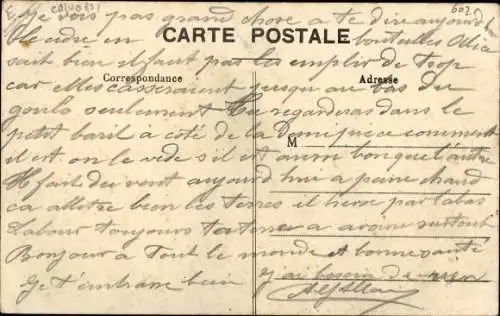 Je vois pas grand chose a te dire aujourd
le cidre en bouteilles
CARTE POSTALE
sait bien il faut pas les emplir de trop
Correspondance
Adresse
car elles casseraient jusqu au bas du
goulo seulement Tu regarderas dans le
petit baril a coté de la comment
M
il est on le vide s il est aussi bon que l'autre
Il fait du vent aujourd hui a peine chaud
ca allitre bien les terres il herse par labas
Labour toujours ta terre a avoine surtout
Bonjour a Tout le monde et bonne santé
J ai besoin de rien
Je t'embrasse bien